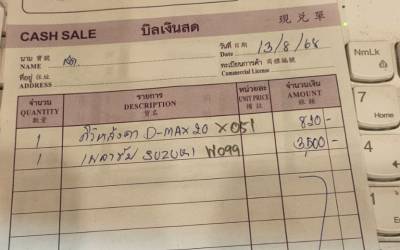 CASH SALE บิลเงินสด 現兌單
นาม 寶號
NAME สด
วันที่ 日期 13/8/68
DATE
ที่อยู่ 住址
ADDRESS
ทะเบียนการค้า 商標編號
Commercial License
จำนวน รายการ หน่วยละ จำนวนเงิน
QUANTITY DESCRIPTION UNIT PRICE AMOUNT
數量 貨名
1 D-MAX 20 X051 820 -
1 เพลาขับ SUZUKI N099 3,500 -
NmLk
7
Home
4
1